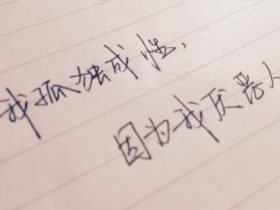 我孤独成性、
因为我厌恶人